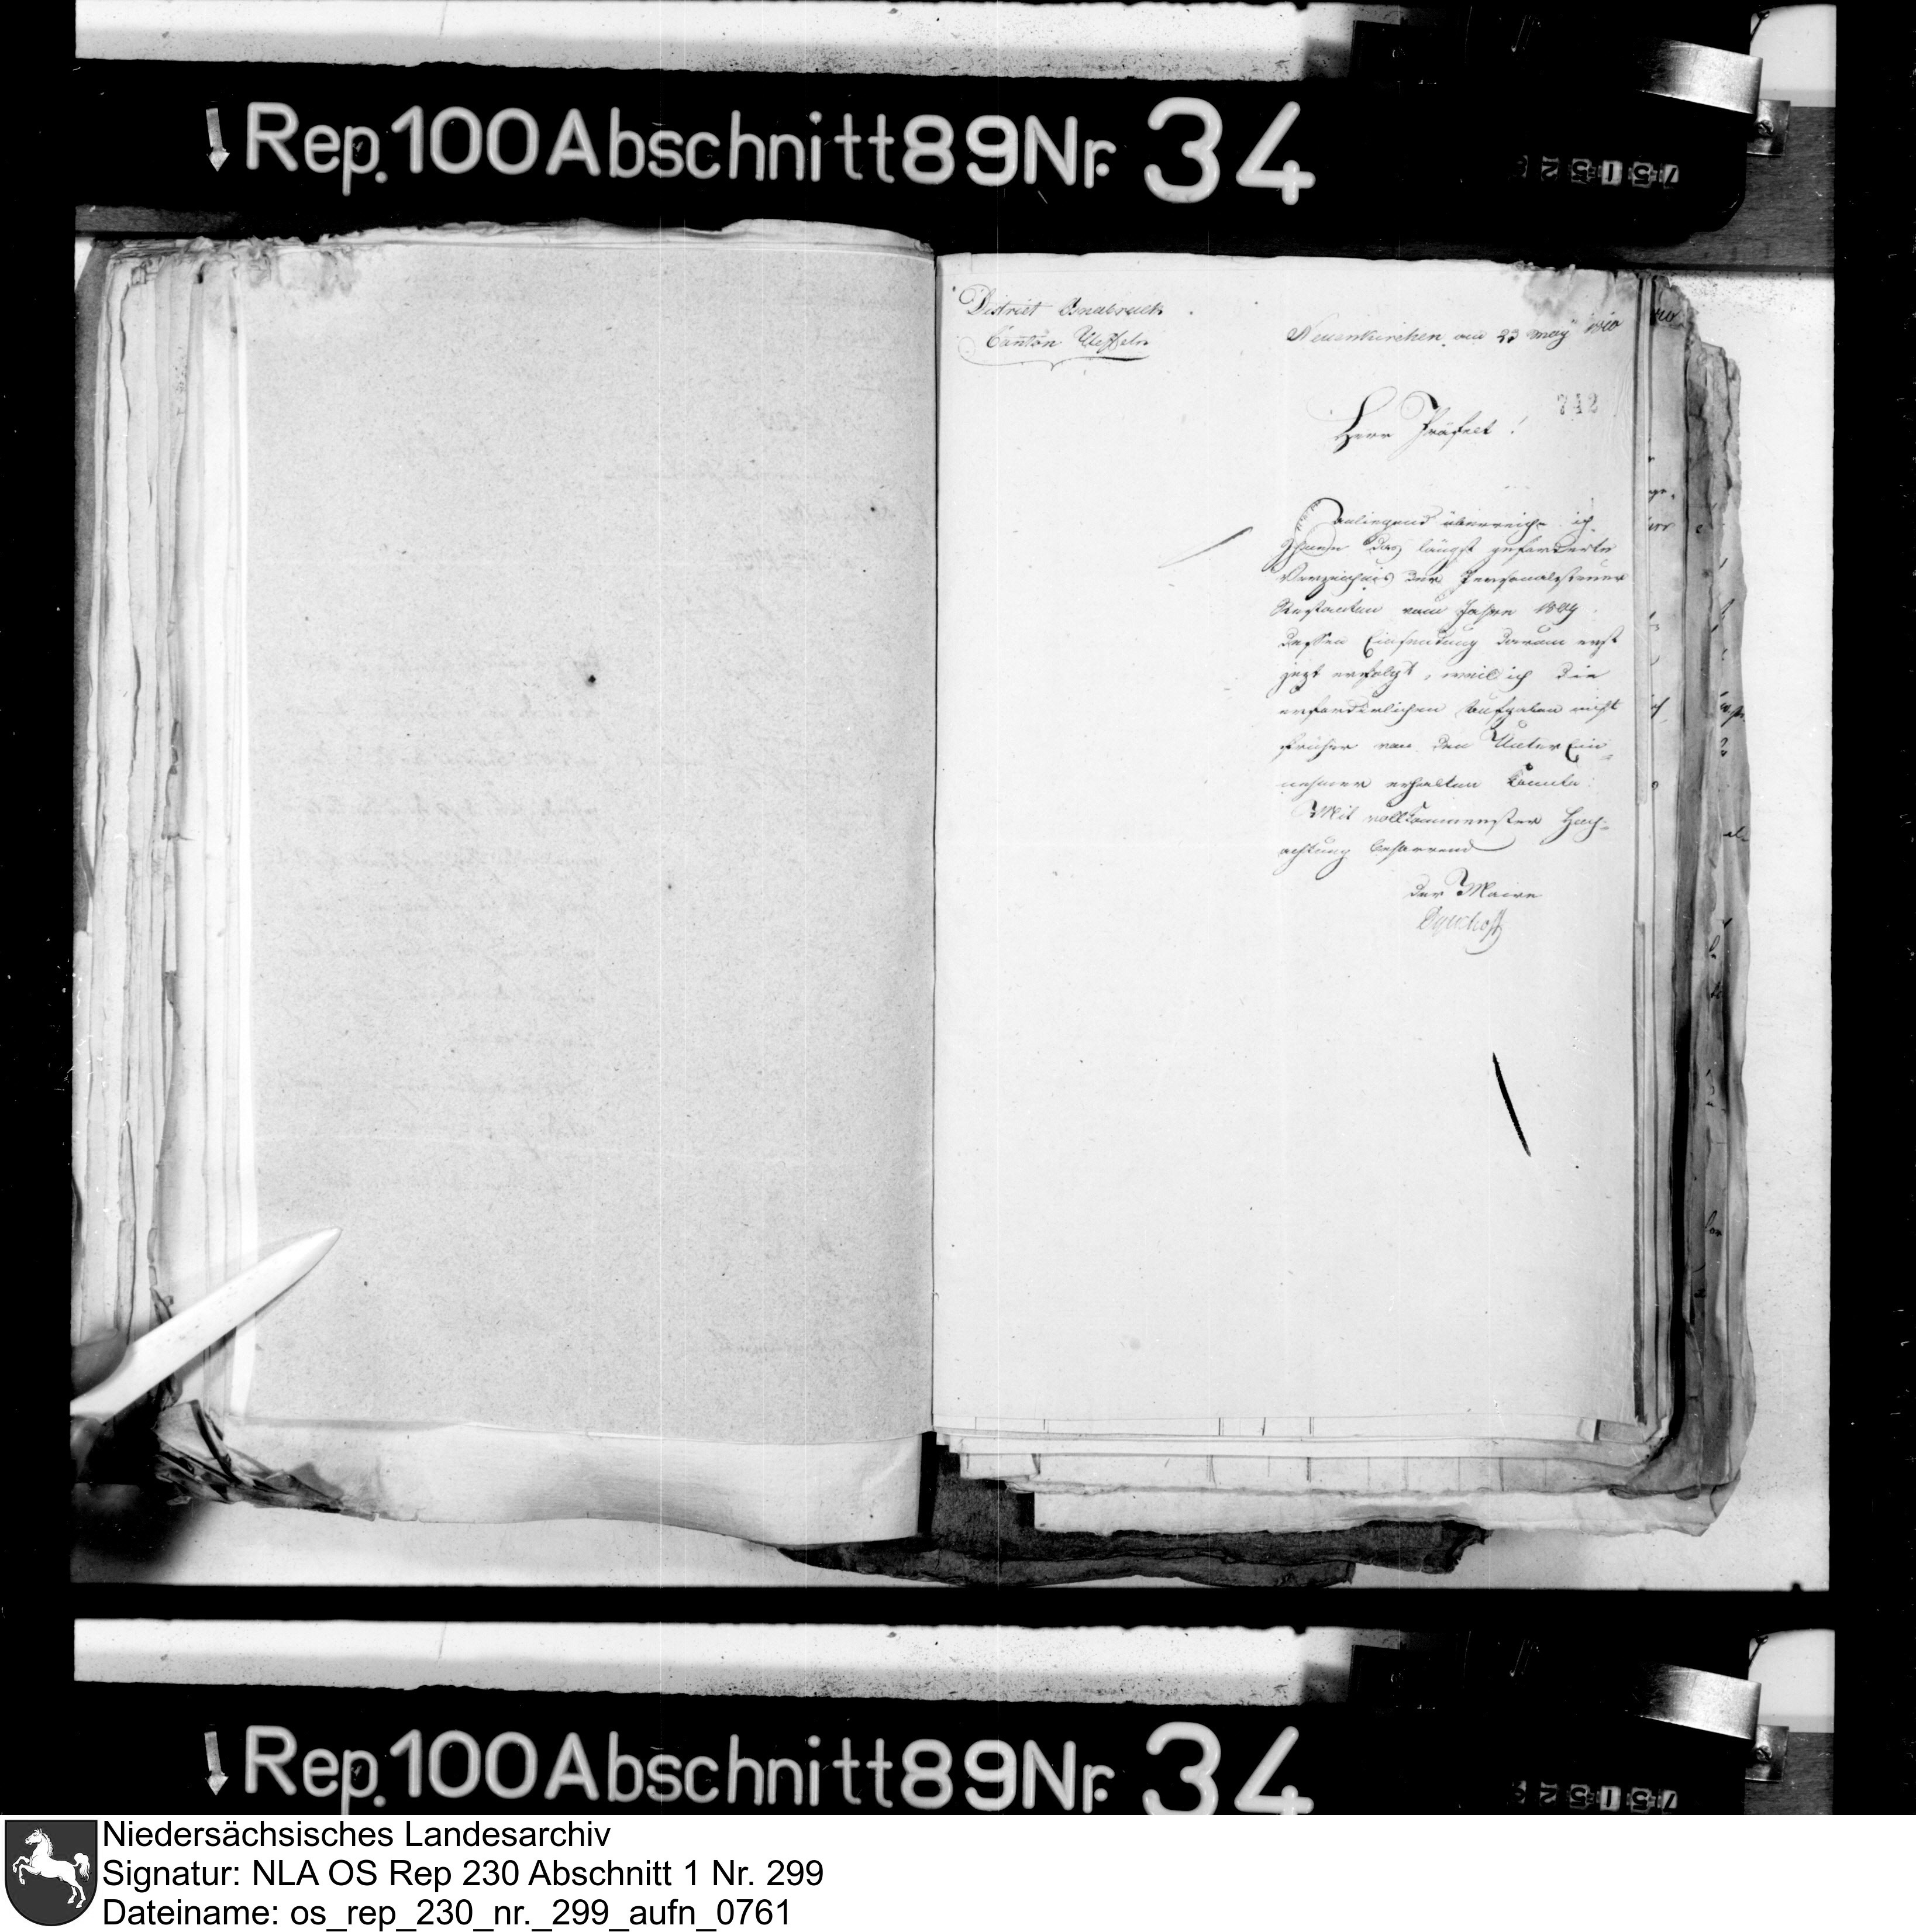 Rep. 100 Abschnitt 89 Nr. 34
District Osnabrück
Canton Ueffeln
Neuenkirchen am 23 May 1810
742
Herr Präfect!
Anliegend überreiche ich
Ihnen das längst geforderte
Verzeichnis der Personalsteuer
Restanten vom Jahre 1809
dessen Einsendung darum erst
jezt erfolgt, weil ich die
erforderlichen Aufgaben nicht
früher von den Unter Ein-
nehmer erhalten konnte.
Mit vollkommenster Hoch-
achtung beharrend
der Maire
Rep. 100 Abschnitt 89 Nr. 34
Niedersächsisches Landesarchiv
Signatur: NLA OS Rep 230 Abschnitt 1 Nr. 299
Dateiname: os_rep_230_nr._299_aufn_0761